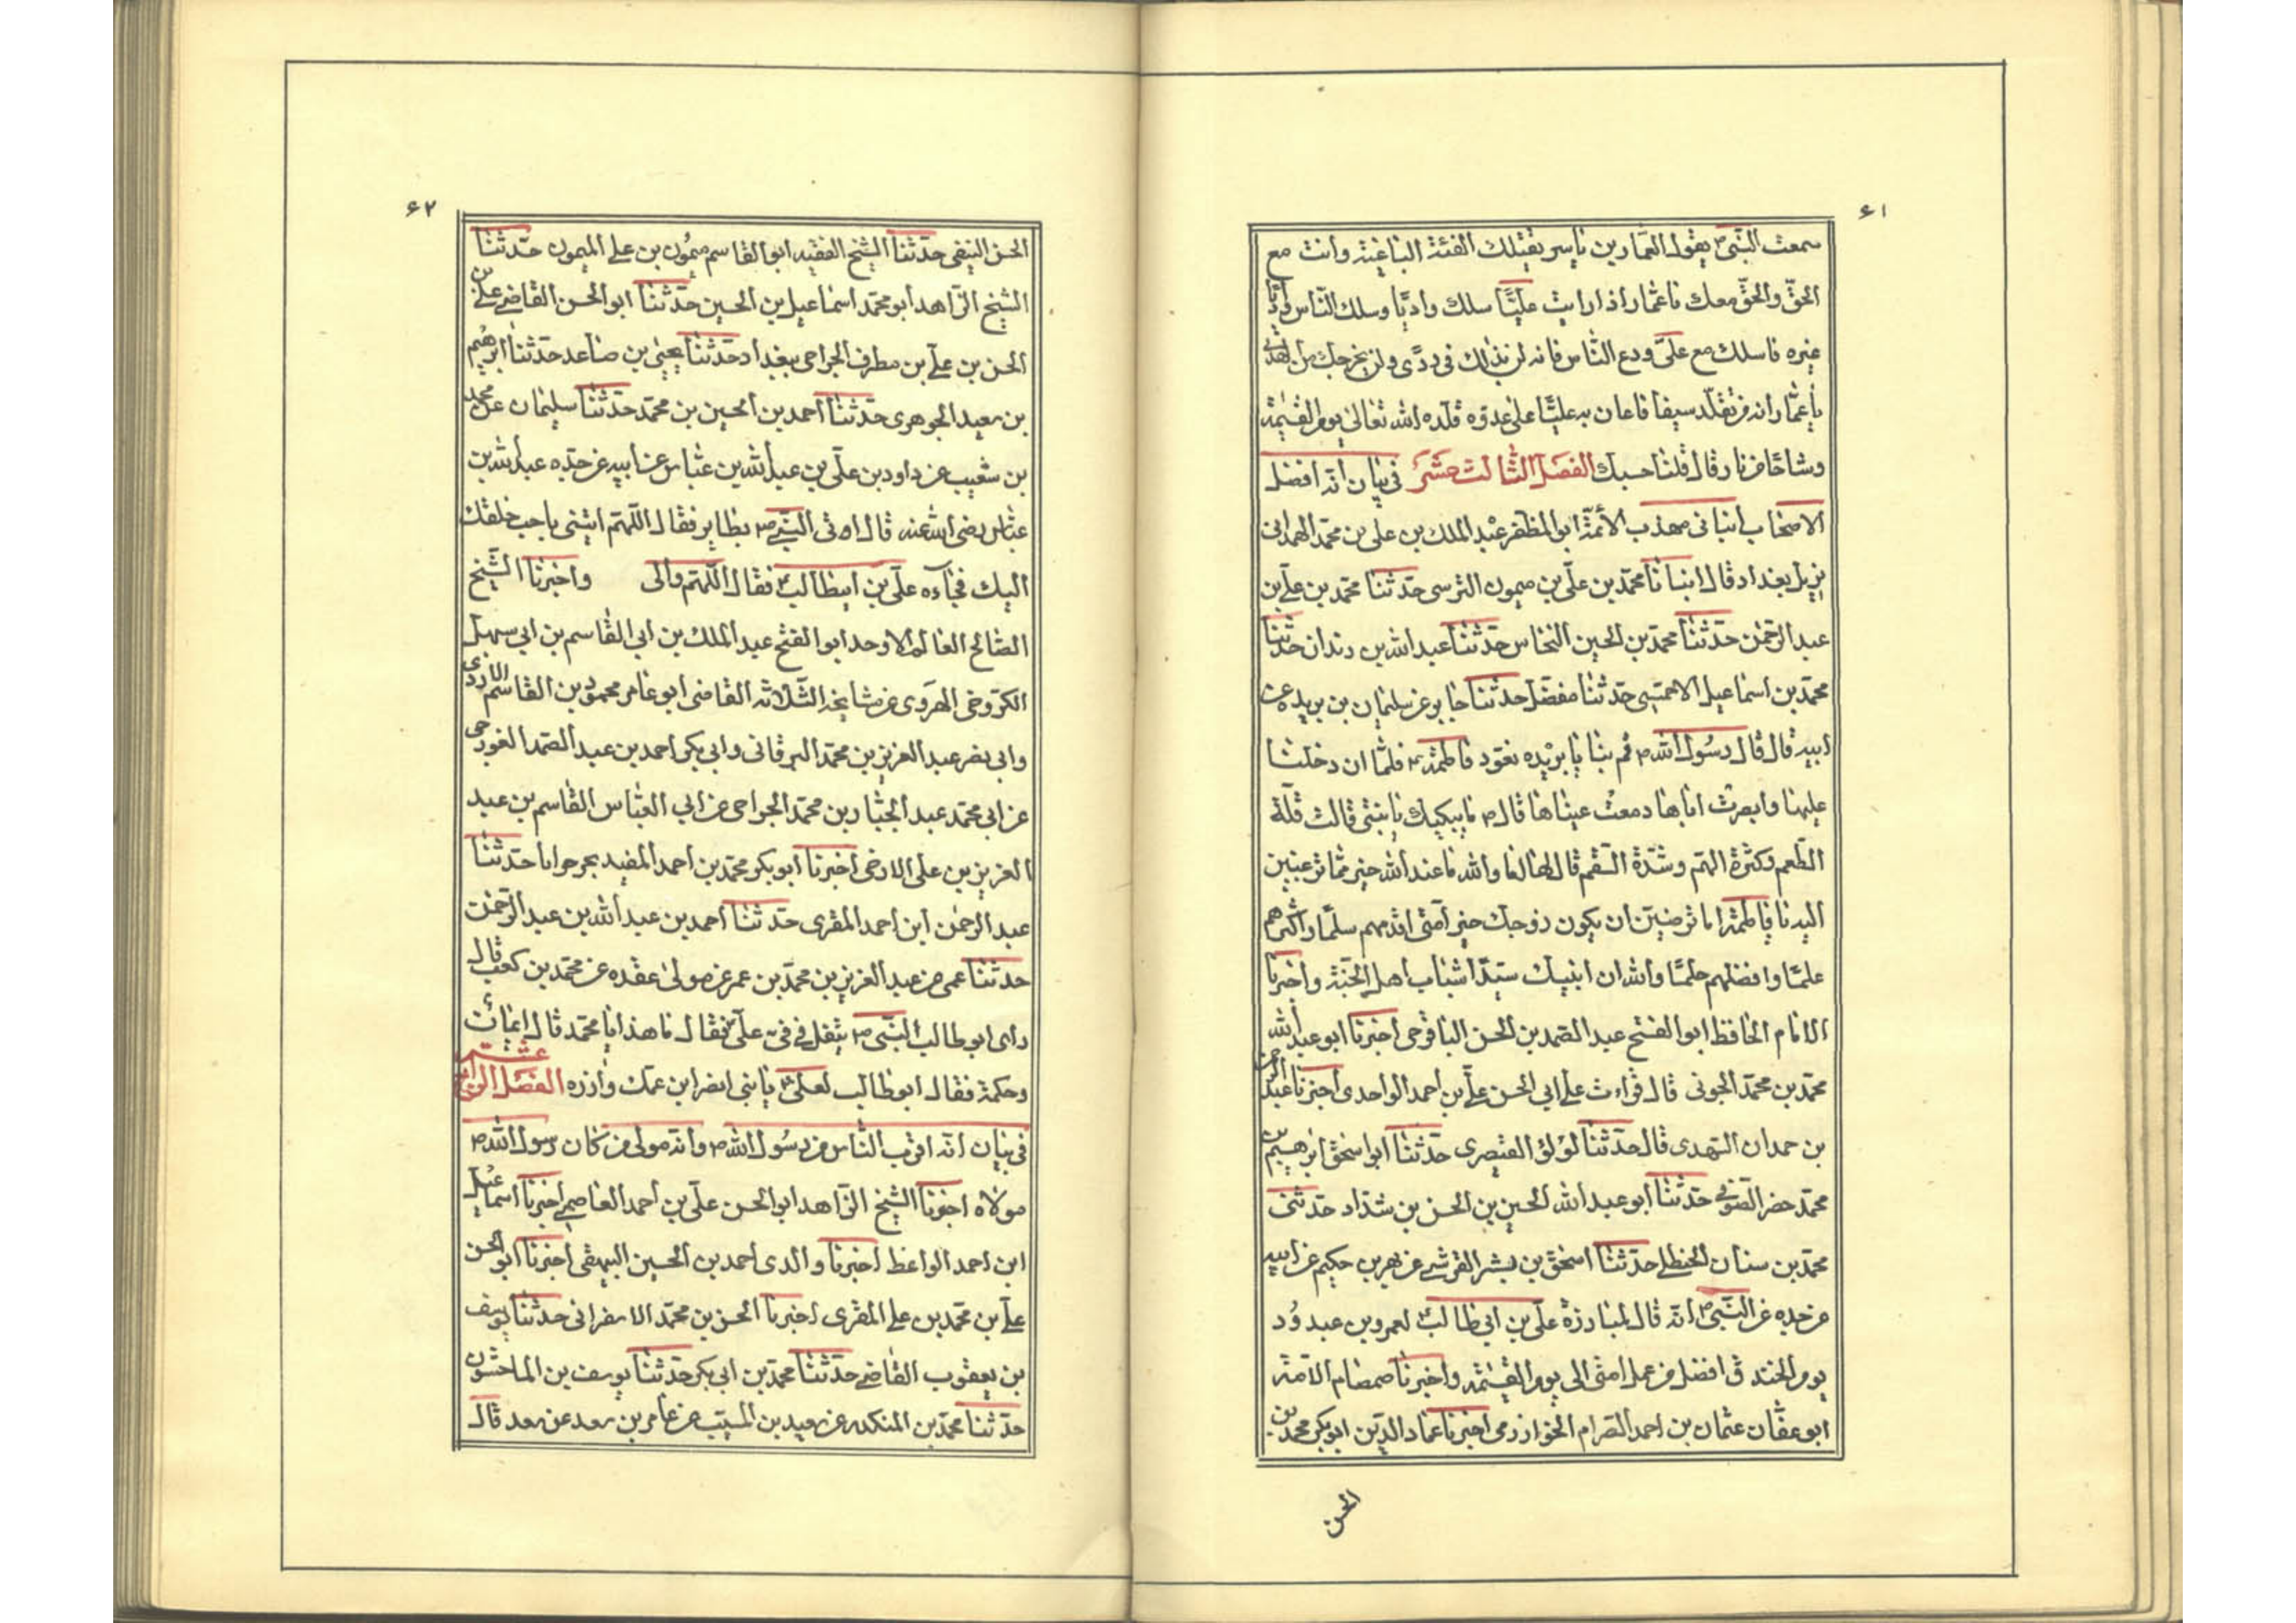 ۶۱
سمعت النبی ص یقول لعمار بن یاسر یقتلك الفئة الباغیة وانت مع
الحقّ والحقّ معك یا عمار اذا رایت علیًّا سلك وادیًا وسلك النّاس وادیًا
غیره فاسلك مع علیّ ودع النّاس فانه لن یدلك فی ردًی ولن یخرجك من الهدی
یا عمّار انه من تقلّد سیفا فاعان به علیًّا علی عدوّه قلّده الله تعالیٰ یوم القیٰمة
وشاحًا من نار قال قلنا حسبك الفصل الثالث عشر فی بیان انه افضل
الاصحاب انبانی مهذب الأئمّة ابو المظفر عبد الملك بن علی بن محمّد الهمدانی
نزیل بغداد قال انبانا محمّد بن علّی بن میمون النرسی حدثنا محمّد بن علی بن
عبد الرّحمٰن حدّثنا محمّد بن الحسین النخاس حدّثنا عبد الله بن دندان حدّثنا
محمّد بن اسماعیل الاحمسی حدّثنا مفضّل حدّثنا جابر عن سلیمان بن بریده عن
ابیه قال قال رسول الله ص قم بنا یا بریده نعود فاطمة ع فلمّا ان دخلنا
علیها وابصرت اباها دمعت عیناها قال ص ما یبكیك یا بنتی قالت قلّة
الطّعم وكثرة الهم وشدّة السقم قال لها اما والله ما عند الله خیر ممّا ترغبین
الیه یا فاطمة اما ترضین ان یكون زوجك خیر اُمّتی اقدمهم سلمًا واكثرهم
علمًا وافضلهم حلمًا والله ان ابنیك سیّدا شباب اهل الجنّة واخبرنا
الامام الحافظ ابو الفتح عبد الصّمد بن الحسن الباقرحی اخبرنا ابو عبد الله
محمّد بن محمّد الجونی قال قراءت علی ابی الحسن علیّ بن احمد الواحدی اخبرنا عبد الرحمن
بن حمدان النهدی قال حدّثنا لؤلؤ القیصری حدّثنا ابو اسحٰق ابرٰهیم بن
محمّد خضر الصّوفی حدّثنا ابو عبد الله الحسین بن الحسن بن شدّاد حدّثنی
محمّد بن سنان الحنظلی حدّثنا اسحٰق بن بشر القرشی عن بهز بن حكیم عن ابیه
عن جدّه عن النبّی ص انّه قال لمبارزة علّی بن ابی طالب لعمرو بن عبد وُد
یوم الخندق افضل من عمل امّتی الی یوم القیٰمة واخبرنا صمصام الائمة
ابو عفّان عثمان بن احمد الصّرام الخوارزمی اخبرنا عماد الدّین ابو بكر محمّد بن
الحسن
۶۲
الحسن النسفی حدّثنا الشیخ الفقیه ابو القاسم میمُون بن علی المیمون حدّثنا
الشیخ الزّاهد ابو محمّد اسماعیل بن الحسین حدّثنا ابو الحسن القاضی علی بن
الحسن بن علی بن مطرف الجراحی ببغداد حدّثنا یحیٰی بن صاعد حدّثنا ابرٰهیم
بن سعید الجوهری حدّثنا احمد بن الحسین بن محمّد حدّثنا سلیمان عن محمد
بن شعیب عن داود بن علّی بن عبد الله بن عبّاس عن ابیه عن جدّه عبد الله بن
عبّاس رضی الله عنه قال اوتی النبّی ص بطایر فقال اللّهمّ ائتنی باحب خلقك
الیك فجاءه علّی بن ابیطالب فقال اللّهمّ والی واخبرنا الشّیخ
الصّالح العالم الاوحد ابو الفتح عبد الملك بن ابی القاسم بن ابی سهل
الكروخی الهَروی عن مشایخه الثّلاثه القاضی ابو عامر محمود بن القاسم الازدی
وابی نصر عبد العزیز بن محمّد البرقانی وابی بكر احمد بن عبد الصّمد الغورجی
عن ابی محمّد عبد الجبّار بن محمّد الجراحی عن ابی العبّاس القاسم بن عبد
العزیز بن علی الارخی اخبرنا ابو بكر محمّد بن احمد المفید بجرجرایا حدّثنا
عبد الرحمٰن ابن احمد المقری حدّثنا احمد بن عبد الله بن عبد الرّحمٰن
حدّثنا عمی عن عبد العزیز بن محمّد بن عمر عن مولی عقده عن محمّد بن كعب قال
رای ابو طالب النبّی ص یتفل فی فیّ علّی فقال ما هذا یا محمّد قال ایمان
وحكمة فقال ابو طالب لعلی یا بنی انصر ابن عمّك وازره الفصل الرّابع عشر
فی بیان انّه اقرب النّاس من رسُول الله ص وانّه مولی من كان رسول الله ص
مولاه اخبرنا الشیخ الزّاهد ابو الحسن علّی بن احمد العاصمی اخبرنا اسماعیل
ابن احمد الواعظ اخبرنا والدی احمد بن الحسین البیهقی اخبرنا ابو الحسن
علّی بن محمّد بن علی المقری اخبرنا الحسن بن محمّد الاسفرانی حدّثنا یوسف
بن یعقوب القاضی حدّثنا محمّد بن ابی بكر حدّثنا یوسف بن الماجشون
حدّثنا محمّد بن المنكدر عن سعید بن المسیّب عن عامر بن سعد عن سعد قال